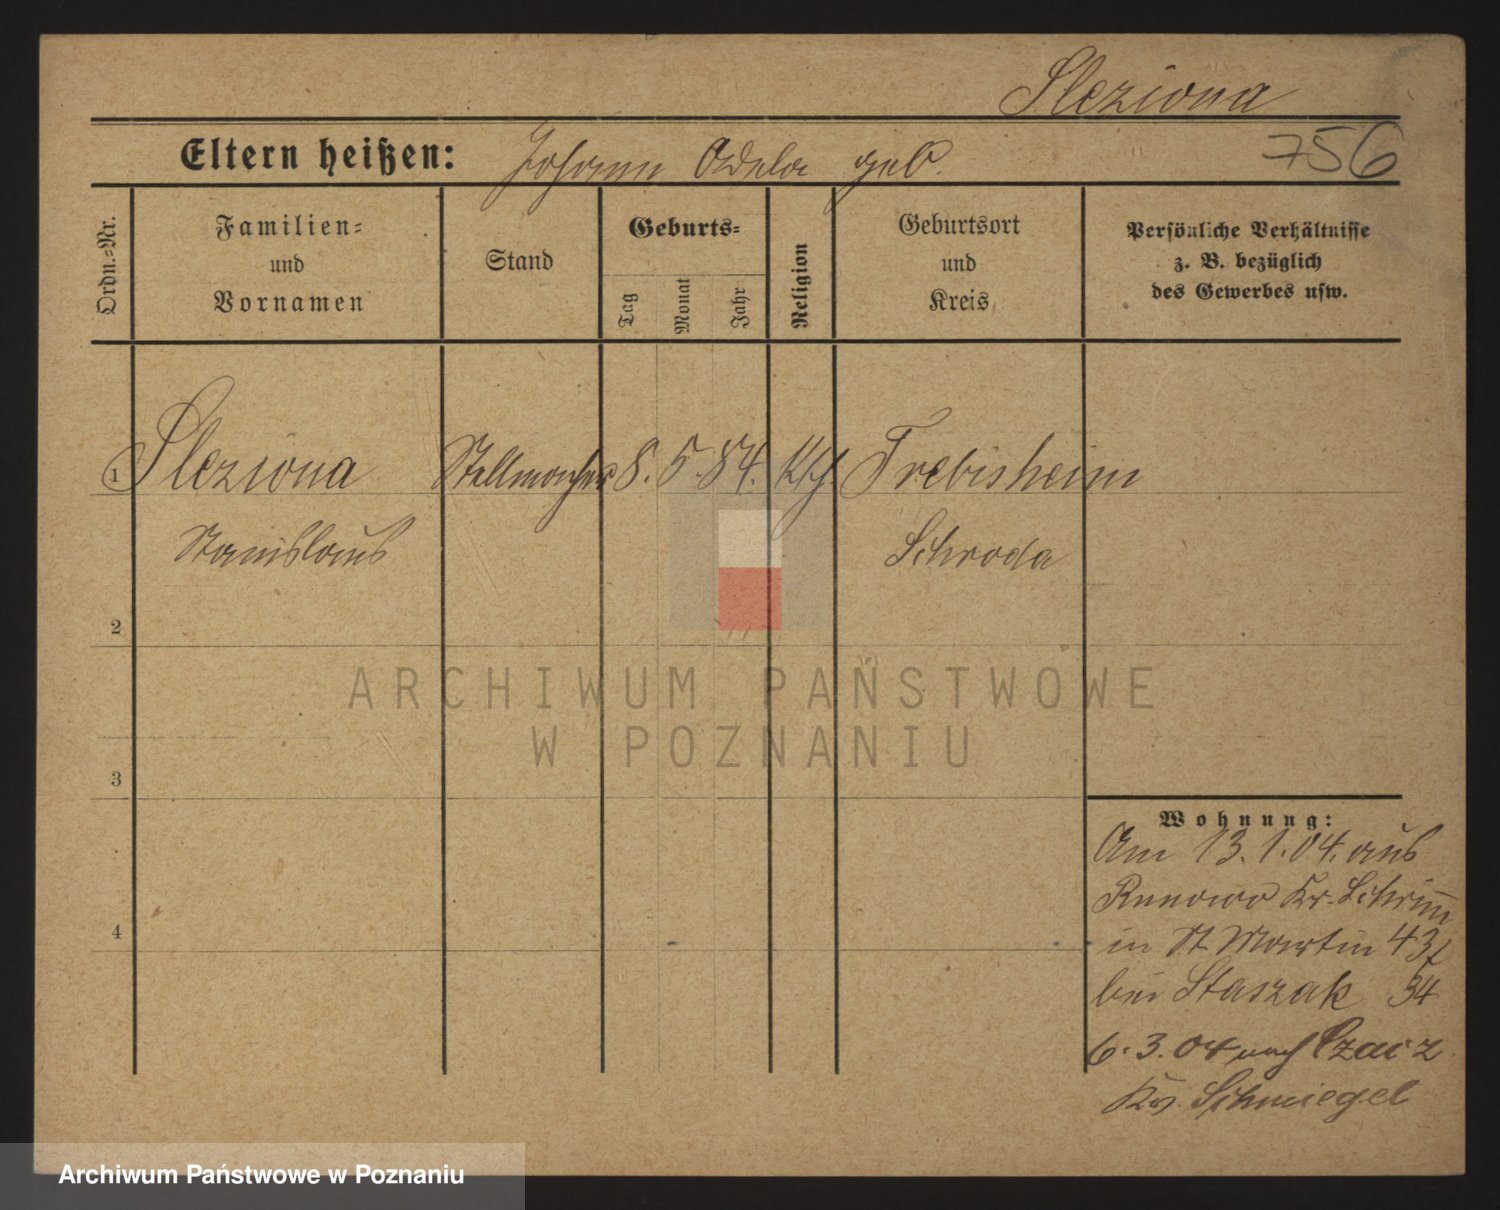 Sleziona
756
Eltern heißen: Johann Adela geb.
Ordn.=Nr.
Familien=
und
Vornamen
Stand
Geburts=
Tag
Monat
Jahr
Religion
Geburtsort
und
Kreis
Persönliche Verhältnisse
z. B. bezüglich
des Gewerbes usw.
1 Sleziona Stellmacher 8. 5. 84. Kth Trebisheim
Stanislaus Schroda
2
3
4
Wohnung:
Am 13. 1. 04. aus
Runowo Kr. Schrimm
in St. Martin 43
bei Staszak 34
6. 3. 04 nach Czacz
Kr. Schmiegel
ARCHIWUM PAŃSTWOWE
W POZNANIU
Archiwum Państwowe w Poznaniu